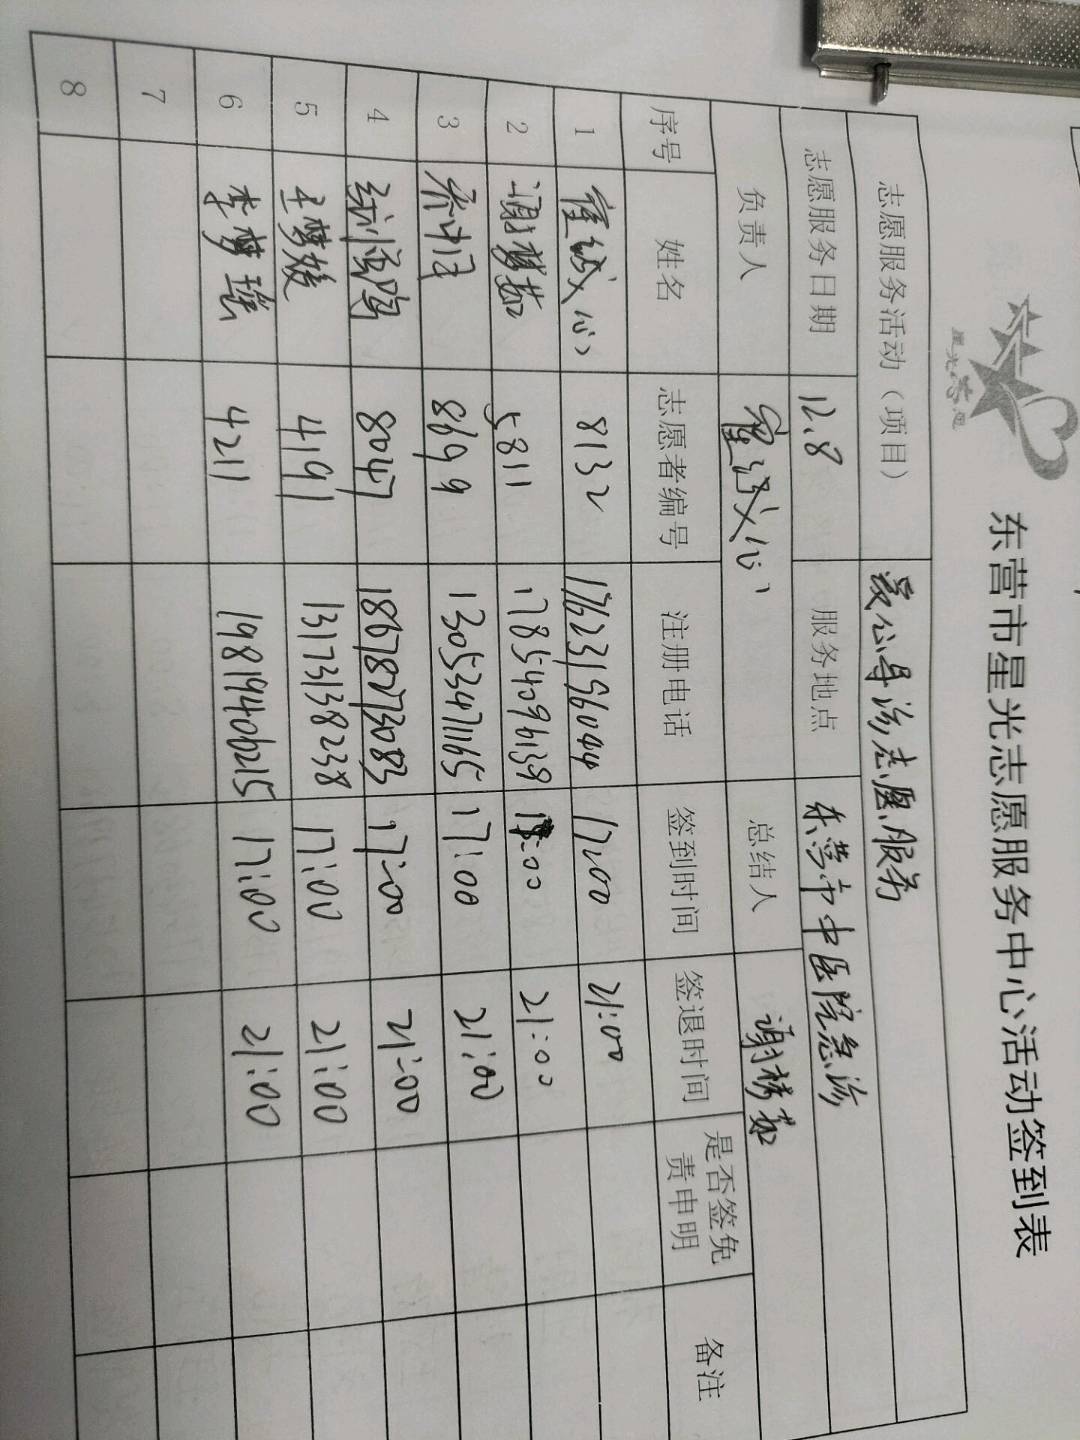 星光志愿
东营市星光志愿服务中心活动签到表
志愿服务活动（项目） 爱公导诊志愿服务
志愿服务日期 12.8 服务地点 东营市中医院急诊
负责人 总结人 谢梦茹
序号 姓名 志愿者编号 注册电话 签到时间 签退时间 是否签免责申明 备注
1 8132 17623196044 17:00 21:00
2 谢梦茹 5811 17854096139 :00 21:00
3 8699 13053471165 17:00 21:00
4 8047 18678073083 17:00 21:00
5 王梦媛 4191 13173138238 17:00 21:00
6 李梦瑶 4211 19819406215 17:00 21:00
7
8